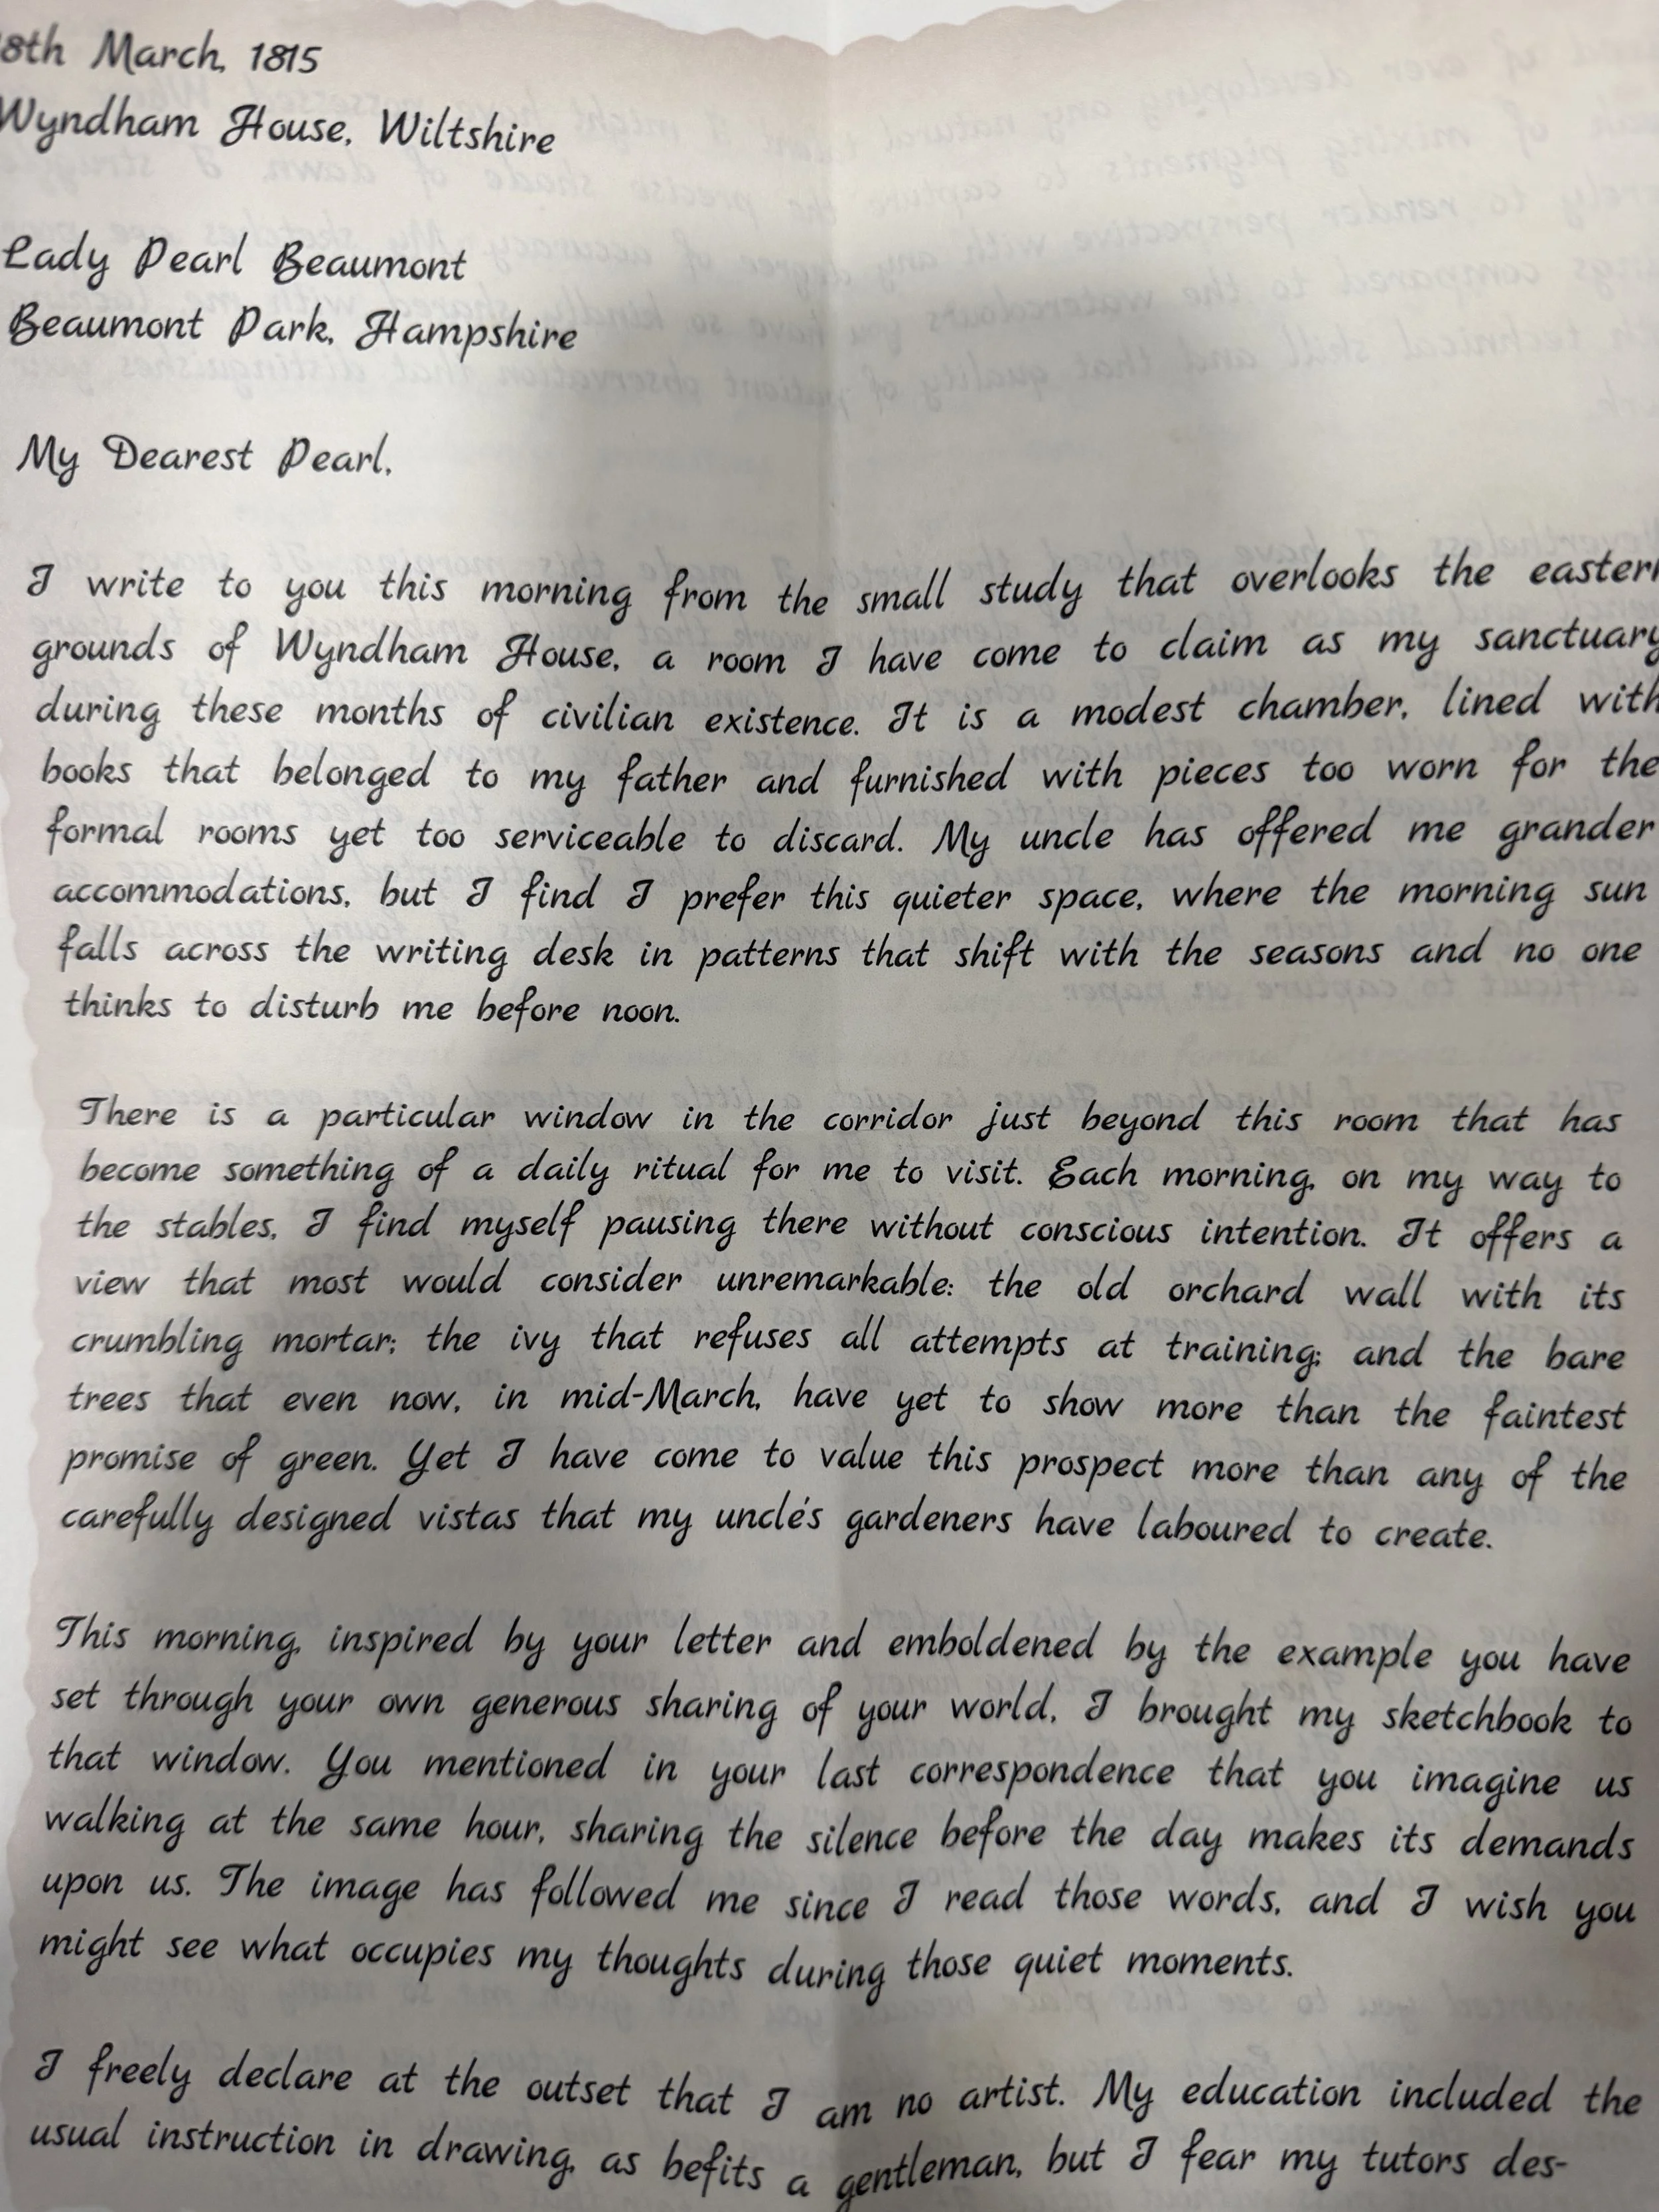 8th March, 1815
Wyndham House, Wiltshire
Lady Pearl Beaumont
Beaumont Park, Hampshire
My Dearest Pearl,
I write to you this morning from the small study that overlooks the eastern
grounds of Wyndham House, a room I have come to claim as my sanctuary
during these months of civilian existence. It is a modest chamber, lined with
books that belonged to my father and furnished with pieces too worn for the
formal rooms yet too serviceable to discard. My uncle has offered me grander
accommodations, but I find I prefer this quieter space, where the morning sun
falls across the writing desk in patterns that shift with the seasons and no one
thinks to disturb me before noon.
There is a particular window in the corridor just beyond this room that has
become something of a daily ritual for me to visit. Each morning, on my way to
the stables, I find myself pausing there without conscious intention. It offers a
view that most would consider unremarkable: the old orchard wall with its
crumbling mortar; the ivy that refuses all attempts at training; and the bare
trees that even now, in mid-March, have yet to show more than the faintest
promise of green. Yet I have come to value this prospect more than any of the
carefully designed vistas that my uncle's gardeners have laboured to create.
This morning, inspired by your letter and emboldened by the example you have
set through your own generous sharing of your world, I brought my sketchbook to
that window. You mentioned in your last correspondence that you imagine us
walking at the same hour, sharing the silence before the day makes its demands
upon us. The image has followed me since I read those words, and I wish you
might see what occupies my thoughts during those quiet moments.
I freely declare at the outset that I am no artist. My education included the
usual instruction in drawing, as befits a gentleman, but I fear my tutors des-